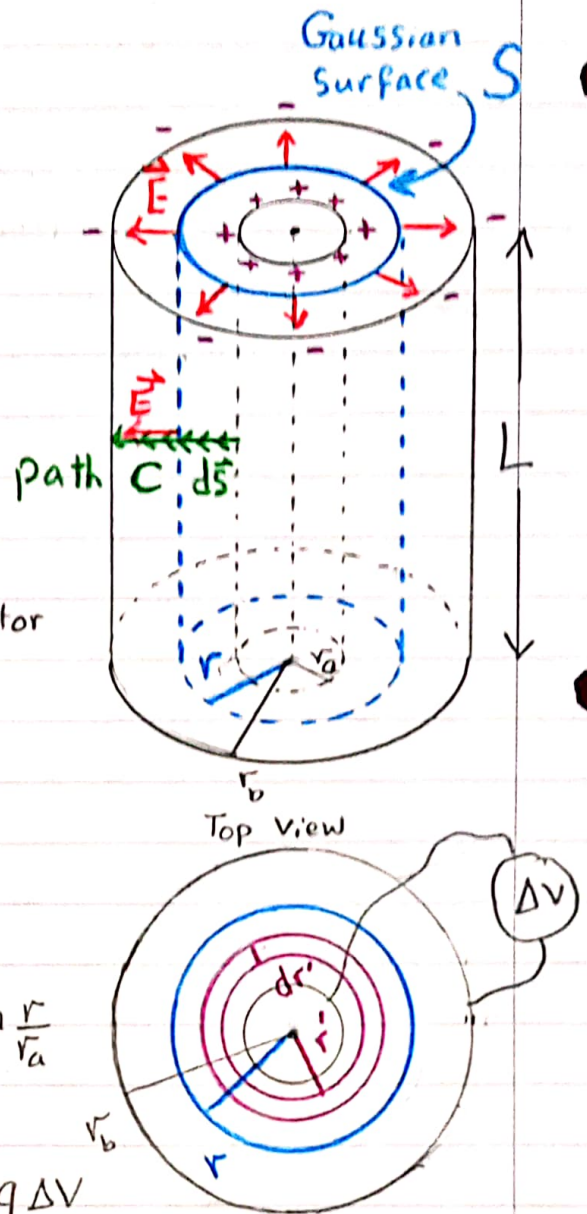 Gaussian
Surface S
- - - - - - - -
E
+ + + + + + + +
E
path C ds
L
tor
r
ra
rb
Top View
ΔV
dr'
r'
r/ra
rb
r
q ΔV